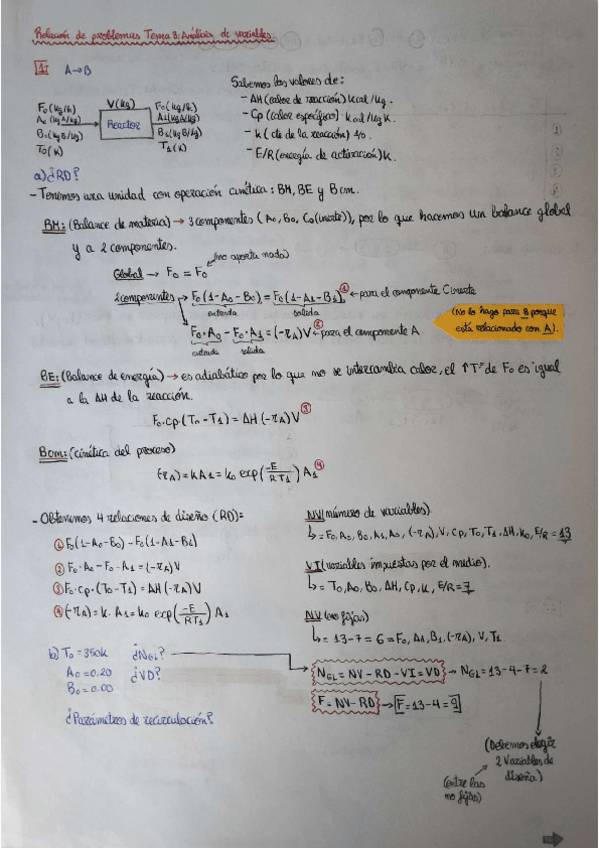 Relación de problemas Tema 3: Análisis de variables.
1. A→B
Sabemos los valores de:
F₀(kg/h) V(kg) F₀(kg/h) - ΔH(calor de reacción)kcal/kg.
A₀(kg A/kg) Reactor A₁(kgA/kg) - Cp(calor específico) kcal/kg K
B₀(kgB/kg) B₁(kg B/kg) - k(cte de la reacción)
T₀(K) T₁(K) - E/R(energía de activación)K.
a)¿RD?
- Tenemos una unidad con operación cinética: BM, BE y Bcm.
BM:(Balance de materia) → 3 componentes (A₀, B₀, C₀(inerte)), por lo que hacemos un balance global
y a 2 componentes.
(no aporta nada)
Global → F₀ = F₀
2 componentes → F₀(1-A₀-B₀) = F₀(1-A₁-B₁) ① ← para el componente C inerte
entrada salida
F₀·A₀ - F₀·A₁ = (-rA)V ② ← para el componente A
entrada salida
(No lo hago para B porque
está relacionado con A).
BE:(Balance de energía) → es adiabático por lo que no se intercambia calor, el ↑Tª de F₀ es igual
a la ΔH de la reacción.
F₀·Cp(T₀-T₁) = ΔH(-rA)V ③
Bcm:(cinética del proceso)
(-rA) = kA₁ = k₀ exp(-E/RT₁) A₁ ④
- Obtenemos 4 relaciones de diseño (RD):
① F₀(1-A₀-B₀) - F₀(1-A₁-B₁)
② F₀·A₀ - F₀·A₁ = (-rA)V
③ F₀·Cp·(T₀-T₁) = ΔH(-rA)V
④ (-rA) = k·A₁ = k₀ exp(-E/RT₁) A₁
NV(número de variables).
↳ = F₀, A₀, B₀, A₁, A₀, (-rA), V, Cp, T₀, T₁, ΔH, k₀, E/R = 13
VI(variables impuestas por el medio).
↳ = T₀, A₀, B₀, ΔH, Cp, k, E/R = 7
NV(no fijas)
↳ = 13-7 = 6 = F₀, A₁, B₁, (-rA), V, T₁.
b) T₀ = 350k ¿NGL?
A₀ = 0,20 ¿VD?
B₀ = 0,00
¿Parámetros de recirculación?
NGL = NV - RD - VI = VD → NGL = 13-4-7 = 2
F = NV - RD → F = 13-4 = 9
(Debemos elegir
2 Variables de
diseño)
(entre las
no fijas)